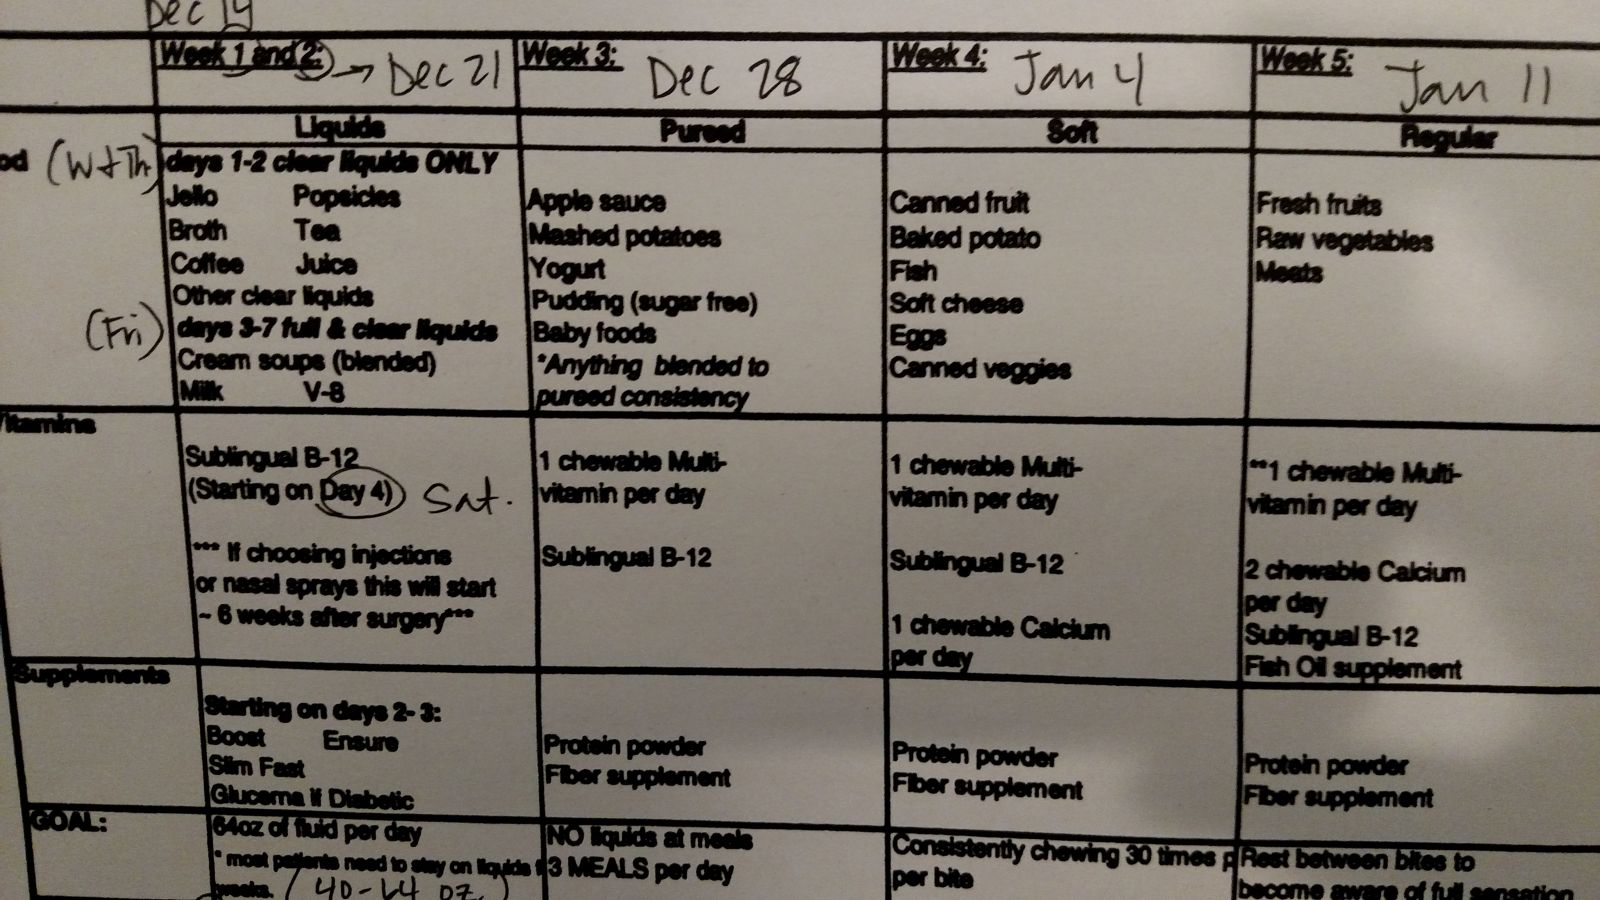 Dec 14
Week 1 and 2: → Dec 21
Week 3: Dec 28
Week 4: Jan 4
Week 5: Jan 11
Liquids
Pureed
Soft
Regular
od (W+Th)
days 1-2 clear liquids ONLY
Jello Popsicles
Broth Tea
Coffee Juice
Other clear liquids
(Fri) days 3-7 full & clear liquids
Cream soups (blended)
Milk V-8
Apple sauce
Mashed potatoes
Yogurt
Pudding (sugar free)
Baby foods
*Anything blended to
pureed consistency
Canned fruit
Baked potato
Fish
Soft cheese
Eggs
Canned veggies
Fresh fruits
Raw vegetables
Meats
Vitamins
Sublingual B-12
(Starting on Day 4) Sat.
*** If choosing injections
or nasal sprays this will start
~ 6 weeks after surgery***
1 chewable Multi-
vitamin per day
Sublingual B-12
1 chewable Multi-
vitamin per day
Sublingual B-12
1 chewable Calcium
per day
**1 chewable Multi-
vitamin per day
2 chewable Calcium
per day
Sublingual B-12
Fish Oil supplement
Supplements
Starting on days 2-3:
Boost Ensure
Slim Fast
Glucerna if Diabetic
Protein powder
Fiber supplement
Protein powder
Fiber supplement
Protein powder
Fiber supplement
GOAL:
64oz of fluid per day
* most patients need to stay on liquids
weeks. (40-64 oz.)
NO liquids at meals
3 MEALS per day
Consistently chewing 30 times p
per bite
Rest between bites to
become aware of full sensation